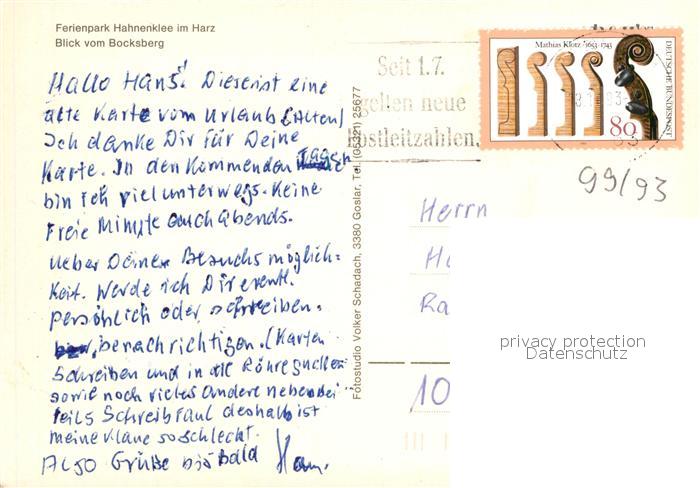 Ferienpark Hahnenklee im Harz
Blick vom Bocksberg
Hallo Hans! Dieses ist eine
alte Karte vom Urlaub (Alten)
Ich danke Dir für Deine
Karte. In den kommenden Tagen
bin ich viel unterwegs. Keine
Freie Minute auch abends.
Ueber Deine Besuchs möglich-
keit. Werde ich Dir eventl.
persöhlich oder schreiben.
benachrichtigen. (Karten
schreiben und in die Röhre gucken
sowie noch vieles andere nebenbei
teils Schreibfaul deshalb ist
meine Klaue so schlecht.
Also Grüße bis bald
Fotostudio Volker Schadach, 3380 Goslar, Tel. (05321) 25677
Seit 1.7.
gelten neue
Postleitzahlen
Mathias Klotz · 1653-1743
80
DEUTSCHE BUNDESPOST
99/93
Herrn
Ra
10
privacy protection
Datenschutz